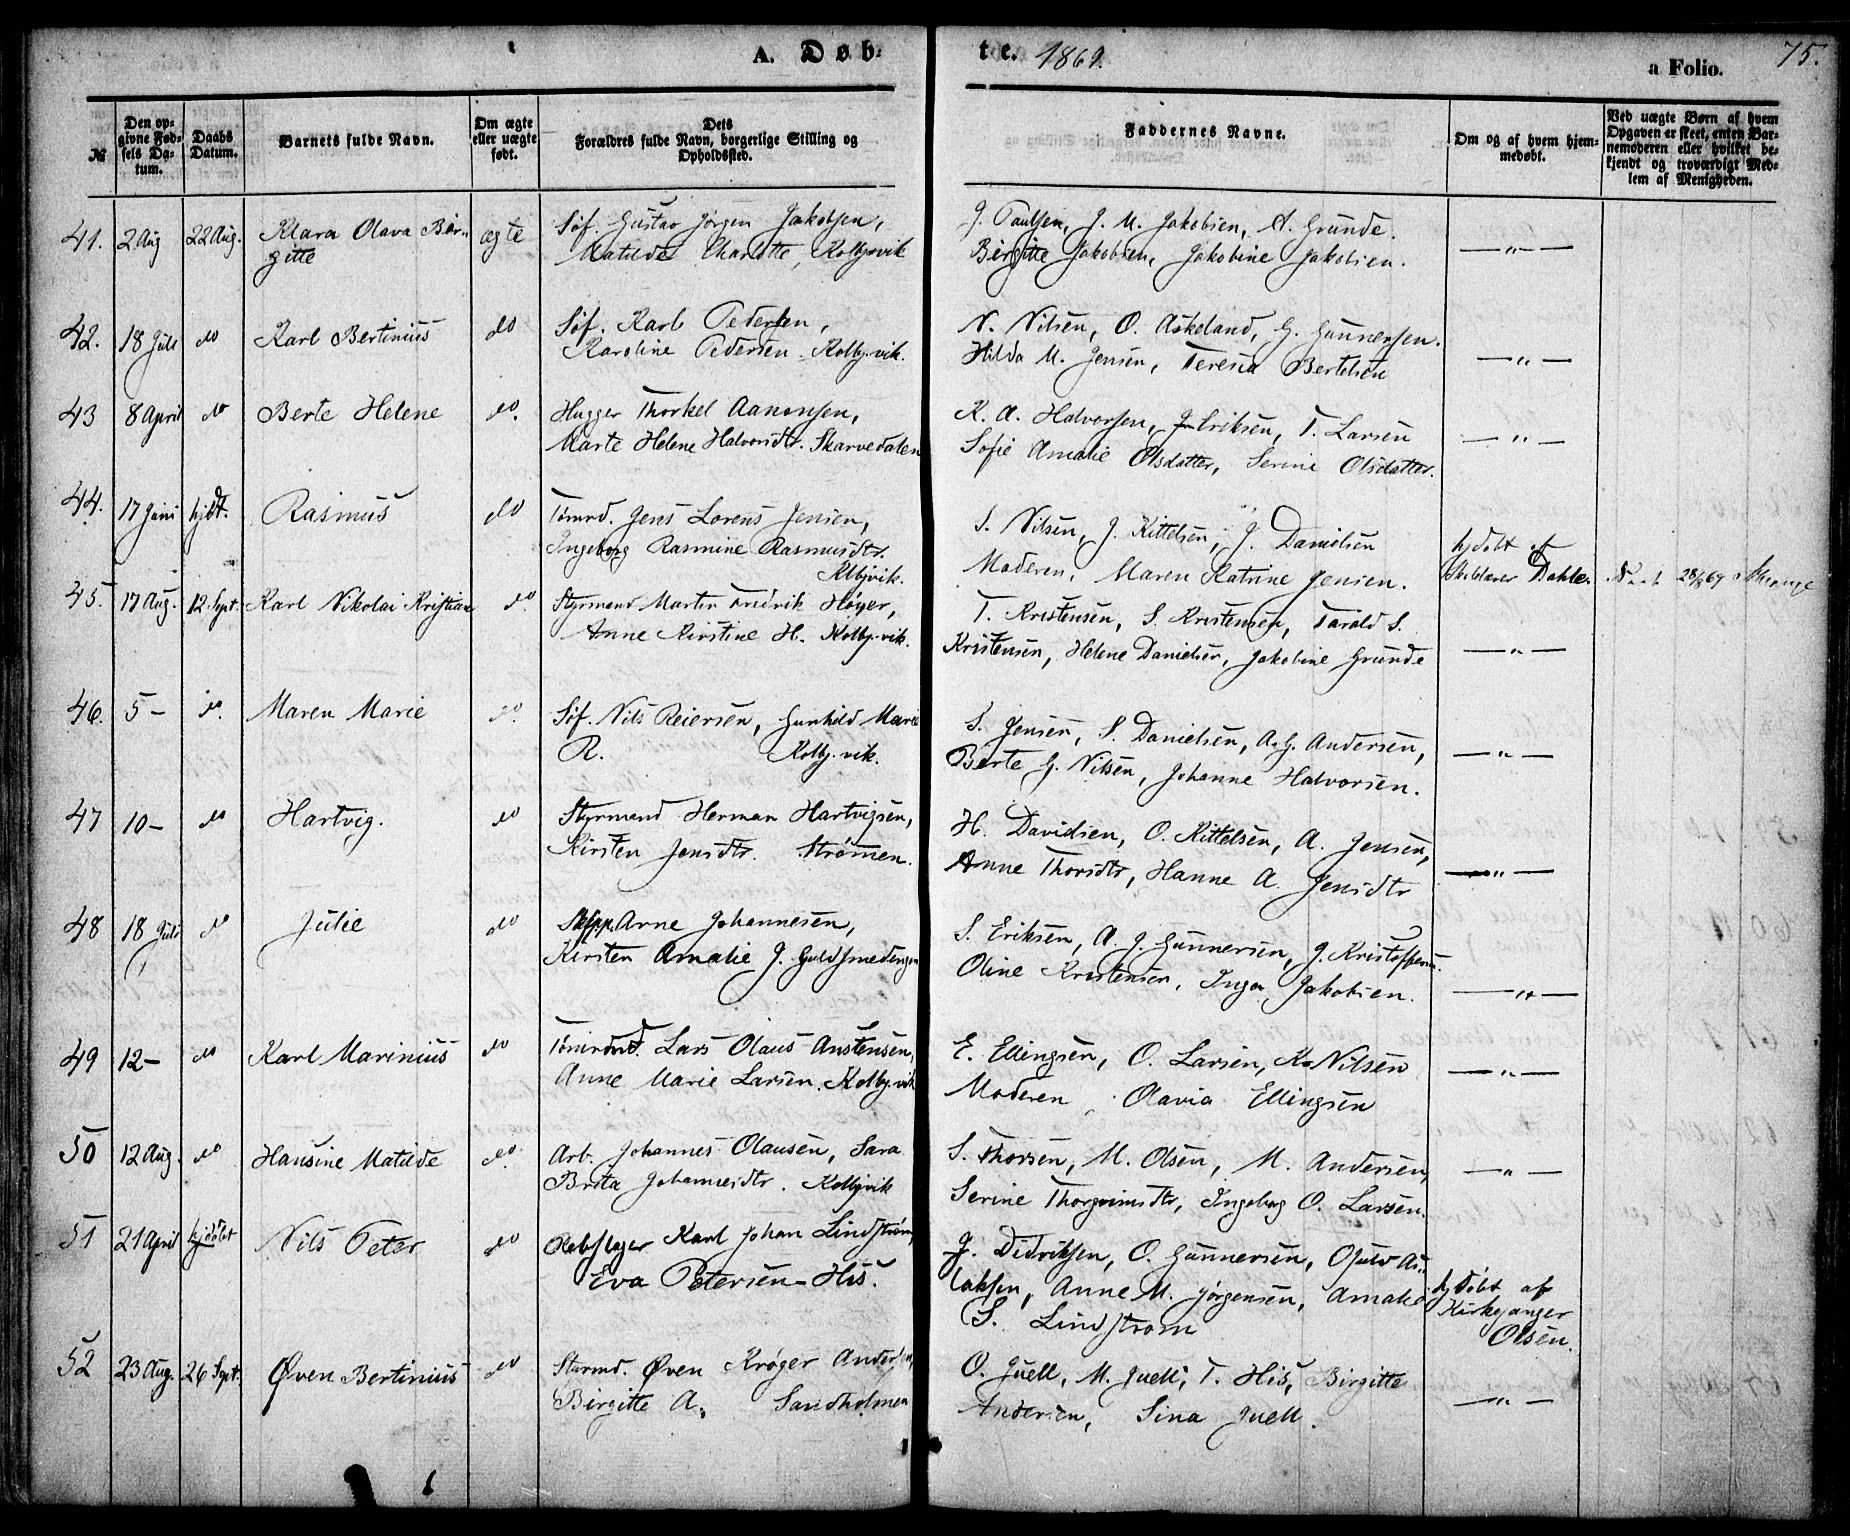 A. Døb-
te. 1869.
a Folio. 75.
№
Den op-
givne Fød-
sels Da-
tum.
Daabs
Datum.
Barnets fulde Navn.
Om ægte
eller uægte
født.
Dets
Forældres fulde Navn, borgerlige Stilling og
Opholdssted.
Faddernes Navne.
Om og af hvem hjem-
medøbt.
Ved uægte Børn af hvem
Opgaven er skeet, enten Bar-
nemoderen eller hvilket be-
kjendt og troværdigt Med-
lem af Menigheden.
41. 2 Aug 22 Aug. Klara Olava Bir-
gitte
ægte
Søf. Gustav Jørgen Jakobsen,
Matilde Charlotte, Kolbj.vik
J. Paulsen, J. M. Jakobsen, A. Grunde.
Birgitte Jakobsen, Jakobine Jakobsen.
— " —
42. 18 Juli do Karl Bertinius do
Søf. Karl Pedersen,
Karoline Pedersen. Kolbj.vik.
N. Nilsen, O. Askeland, G. Gunnersen.
Hilda M. Jensen, Teresia Bertelsen
— " —
43 8 April do Berte Helene do.
Hugger Thorkel Aanonsen,
Marte Helene Halvorsdtr. Skarvedalen
K. A. Halvorsen, J. Eriksen, T. Larsen
Sofie Amalie Olsdatter, Serine Olsdatter.
— " —
44. 17 Juni hjdt. Rasmus do
Tømmd. Jens Lorens Jensen,
Ingeborg Rasmine Rasmusdtr.
Klbjvik.
S. Nilsen, J. Kittelsen, J. Danielsen
Moderen, Maren Katrine Jensen.
hjdøbt af
Skolelærer Dahle.
28/6 69
45. 17 Aug. 12 Sept. Karl Nikolai Kristian do
Styrmand Martin Fredrik Høyer,
Anne Kirstine H. Kolbj.vik.
T. Kristensen, S. Kristensen, Tarald S.
Kristensen, Helene Danielsen, Jakobine Grunde
— " —
46. 5 — do. Maren Marie do.
Søf. Nils Reiersen, Gunhild Marie
R. Kolbj.vik.
S. Jensen, S. Danielsen, A. G. Andersen,
Berte G. Nilsen, Johanne Halvorsen.
— " —
47 10 — do Hartvig. do
Styrmand Herman Hartvigsen,
Kirsten Jensdtr. Strømen.
H. Davidsen, O. Kittelsen, A. Jensen,
Anne Thorsdtr, Hanne A. Jensdtr
— " —
48 18 Juli do Julie do
Skipp. Arne Johannesen,
Kirsten Amalie J. Guldsmedengen
S. Eriksen, A. J. Gunnersen, J. Kristoffersen.
Oline Kristensen, Inga Jakobsen.
— " —
49 12 — do Karl Marinius do
Tømrmd. Lars Olaus Anstensen,
Anne Marie Larsen. Kolbj.vik
E. Ellingsen, O. Larsen, K. Nilsen
Moderen, Olavia Ellingsen
— " —
50 12 Aug. do Hansine Matilde do.
Arb. Johannes Olausen, Sara
Brita Johannesdtr. Kolbjvik
S. Thorsen, M. Olsen, M. Andersen,
Serine Thorgrimsdtr, Ingeborg O. Larsen.
— " —
51 21 April hjdøbt Nils Peter do
Rebslager Karl Johan Lindstrøm,
Eva Petersen — His.
J. Didriksen, O. Gunnersen, Ojulv As-
laksen, Anne M. Jørgensen, Amalie
S. Lindstrøm
hjdøbt af
Kirkesanger
Olsen.
52 23 Aug. 26 Sept. Øven Bertinius do
Sturmd. Øven Krøger Andersen,
Birgitte A., Sandholmen
O. Juell, M. Juell, T. His, Birgitte
Andersen, Sina Juell.
— " —